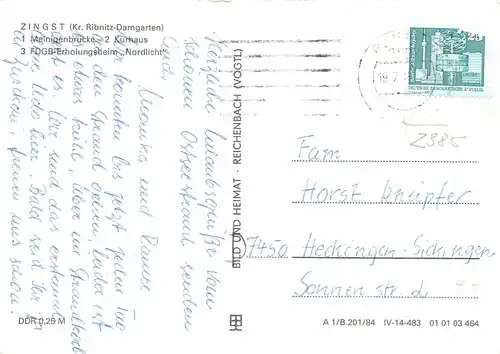 ZINGST (Kr. Ribnitz-Damgarten)
1 Meinigenbrücke - 2 Kurhaus
3 FDGB-Erholungsheim „Nordlicht“
Herzliche Urlaubsgrüße vom
schönen Ostseestrand senden
Euch
Monika und Rainer
Wir konnten bis jetzt jeden Tag
an den Strand gehen, leider ist
es etwas kühl, aber im Strandkorb
geht es. Wir sind das
hier. Bald seid Ihr in
Zwickau, freuen uns schon.
BILD UND HEIMAT · REICHENBACH (VOGTL)
DEUTSCHE DEMOKRATISCHE REPUBLIK
2985
Fam
Horst Knüpfer
7450 Hechingen-Sickingen
Sonnenstr. 2
DDR 0,25 M
A 1/B 201/84 IV-14-483 01 01 03 464